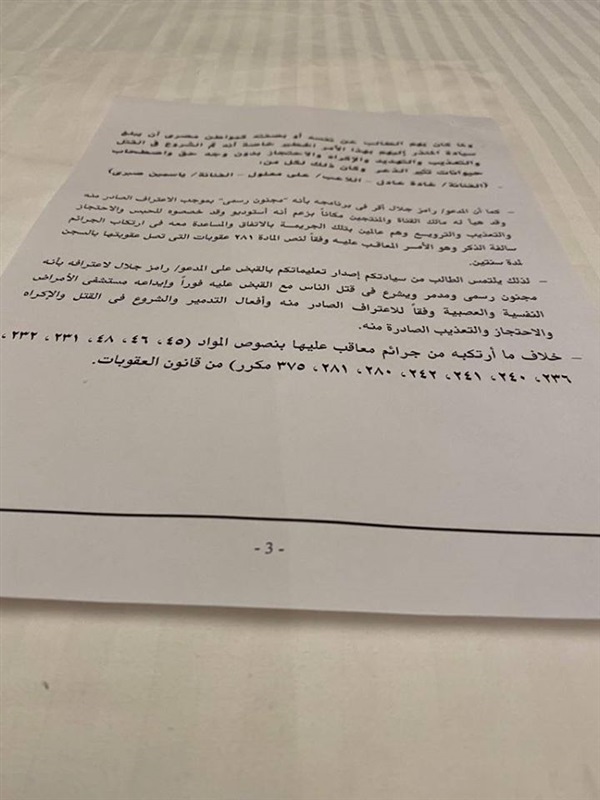 وما كان يهم الطالب عن نفسه أو بصفته كمواطن مصرى أن يبلغ
سيادة المنذر إليهم بهذا الأمر الخطير خاصة أن تم الشروع فى القتل
والتعذيب والتهديد والإكراه والاحتجاز بدون وجه حق واصطحاب
حيوانات تثير الذعر وكان ذلك لكل من:
- (الفنانة/ غادة عادل – اللاعب/ على معلول – الفنانة/ ياسمين صبرى)
– كما أن المدعو/ رامز جلال أقر فى برنامجه بأنه "مجنون رسمى" بموجب الاعتراف الصادر منه
وقد هيأ له مالك القناة والمنتجين مكاناً بزعم أنه أستوديو وقد خصصوه للحبس والاحتجاز
والتعذيب والترويع وهم عالمين بتلك الجريمة بالاتفاق والمساعدة معه فى ارتكاب الجرائم
سالفة الذكر وهو الأمر المعاقب عليه وفقاً لنص المادة ٢٨١ عقوبات التى تصل عقوبتها بالسجن
لمدة سنتين.
– لذلك يلتمس الطالب من سيادتكم إصدار تعليماتكم بالقبض على المدعو/ رامز جلال لاعترافه بأنه
مجنون رسمى ومدمر ويشرع فى قتل الناس مع القبض عليه فوراً وإيداعه مستشفى الأمراض
النفسية والعصبية وفقاً للاعتراف الصادر منه وأفعال التدمير والشروع فى القتل والإكراه
والاحتجاز والتعذيب الصادرة منه.
– خلاف ما أرتكبه من جرائم معاقب عليها بنصوص المواد (٤٥، ٤٦، ٤٨، ٢٣١، ٢٣٢،
٢٣٦، ٢٤٠، ٢٤١، ٢٤٢، ٢٨٠، ٢٨١، ٣٧٥ مكرر) من قانون العقوبات.
- 3 -